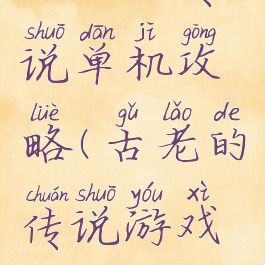 shuō dān jī gōng
说单机攻
lüè gǔ lǎo de
略(古老的
chuán shuō yóu xì
传说游戏